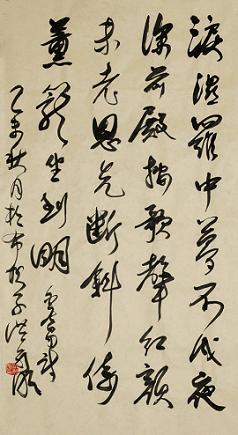 淚濕羅巾夢不成夜
深前殿按歌聲紅顏
未老恩先斷斜倚
薰籠坐到明 白居易詩
乙未秋月於